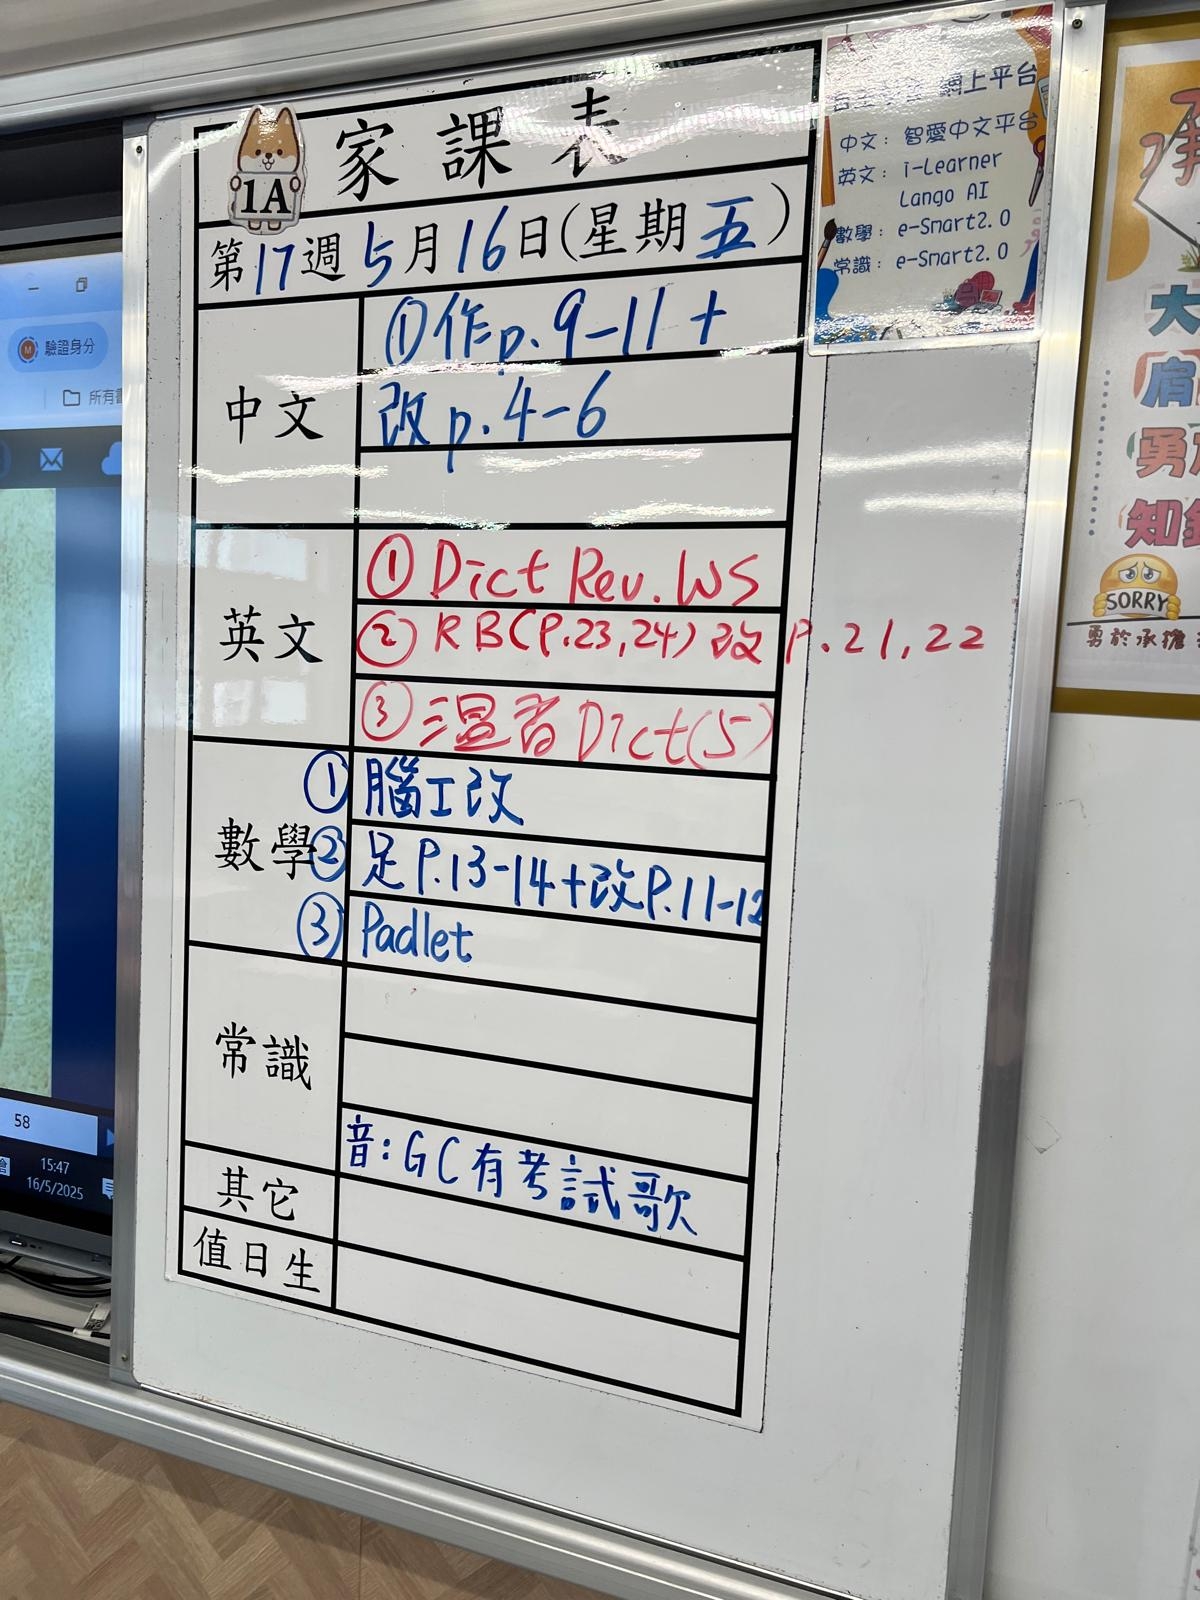 家課表
1A
第17週5月16日(星期五)
中文
①作p.9-11+
改p.4-6
英文
① Dict Rev. WS
② RB(P.23,24)改 P.21,22
③ 溫習Dict(5)
數學
① 腦工改
② 足P.13-14+改P.11-12
③ Padlet
常識
音:GC有考試歌
其它
值日生
網上平台
中文:智愛中文平台
英文:i-Learner
Lango AI
數學:e-Smart2.0
常識:e-Smart2.0
驗證身分
所有
58
15:47
16/5/2025
大
肩
勇
知
SORRY
勇於承擔